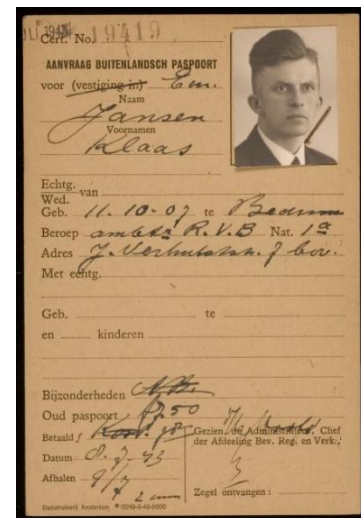 Cert. No. 19419
AANVRAAG BUITENLANDSCH PASPOORT
voor (vestiging in) Em.
Naam
Jansen
Voornamen
Klaas
Echtg.
Wed. van
Geb. 11.10.07 te Bedum
Beroep ambtr R.V.B Nat. 1e
Adres J. Verhulststr. 7 bov.
Met echtg.
Geb. te
en kinderen
Bijzonderheden
Oud paspoort 7.50
Betaald f
Gezien, de Administrateur, Chef
der Afdeeling Bev. Reg. en Verk.,
Datum 8.7.43
Afhalen 9/7
Zegel ontvangen:
Stadsdrukkerij Amsterdam